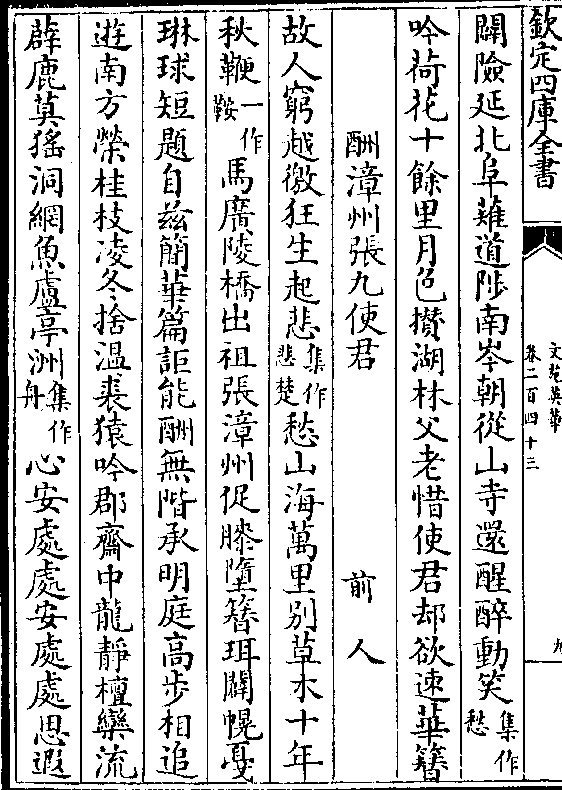 欽定四庫全書
文苑英華
卷二百四十三
九
闢險延北阜薙道陟南岑朝從山寺還醒醉動笑集作愁
吟荷花十餘里月色攢湖林父老惜使君却欲速華簪
酬漳州張九使君 前人
故人窮越徼狂生起悲集作悲楚愁山海萬里别草木十年
秋鞭一作鞍馬廣陵橋出祖張漳州促膝墮簪珥闢幌戛
琳球短題自兹簡華篇詎能酬無階承明庭高步相追
逰南方榮桂枝凌冬捨温裘猿吟郡齋中龍靜檀欒流
薜鹿莫猺洞網魚盧亭洲集作舟心安處處安處處思遐